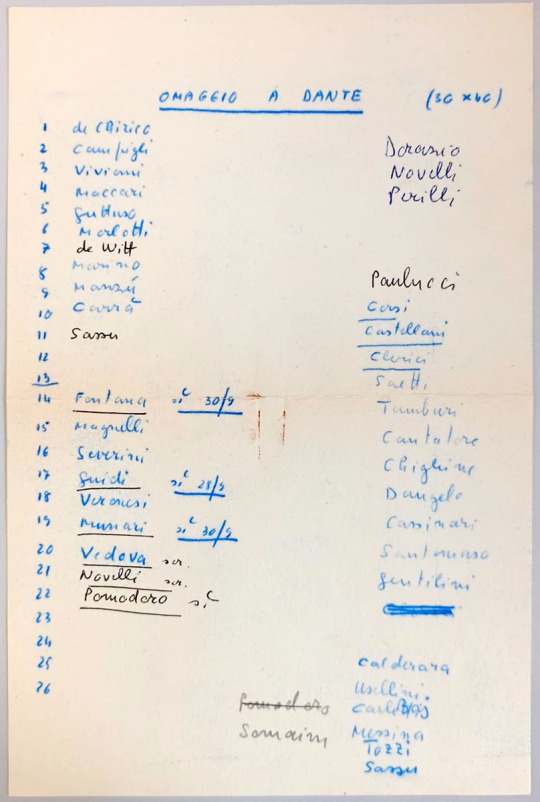 OMAGGIO A DANTE (30 x 40)
1 de Chirico
2 Campigli
3 Viviani
4 Maccari
5 Guttuso
6 Morlotti
7 de Witt
8 Marino
9 Manzú
10 Carrà
11 Sassu
12
13
14 Fontana sì 30/9
15 Magnelli
16 Severini
17 Guidi sì 28/9
18 Veronesi
19 Munari sì 30/9
20 Vedova scr.
21 Novelli scr.
22 Pomodoro sì
23
24
25
26
Dorazio
Novelli
Perilli
Paulucci
Corsi
Castellani
Clerici
Saetti
Tamburi
Cantatore
Chighine
Dangelo
Cassinari
Santomaso
Gentilini
Calderara
Usellini.
Pomodoro
Somaini
Messina
Tozzi
Sassu